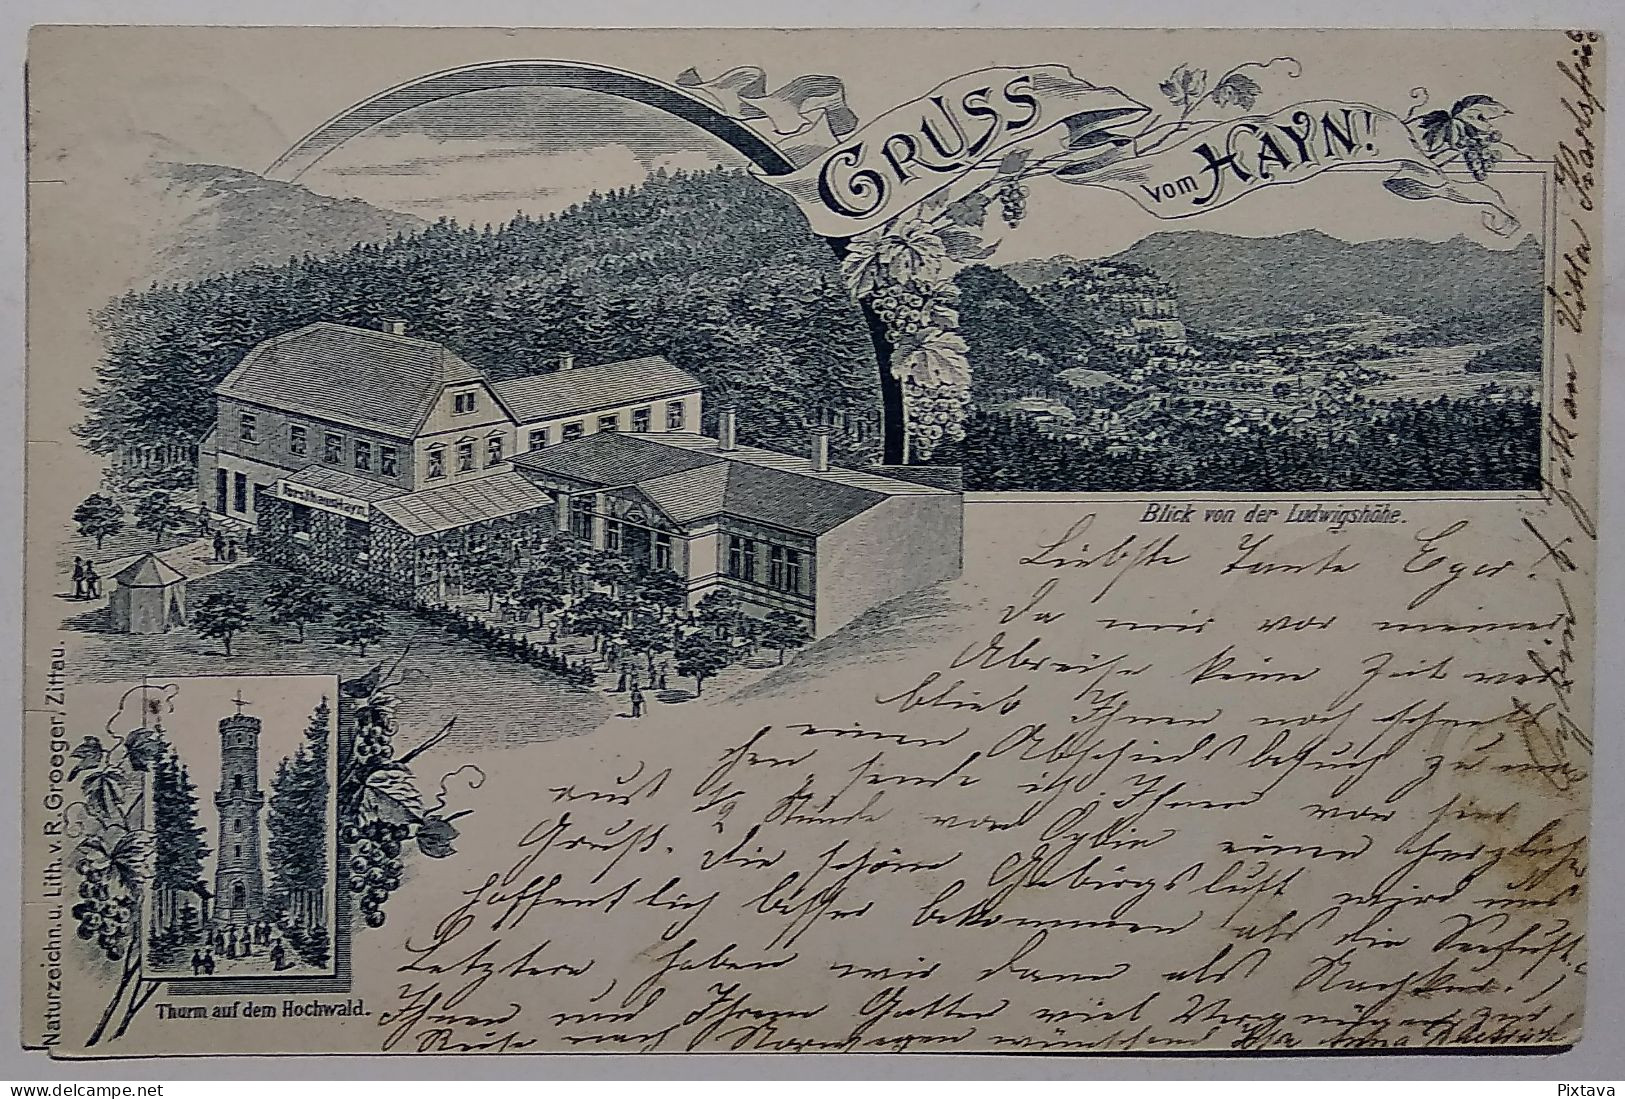 GRUSS
vom HAYN!
Forsthaus Hayn.
Blick von der Ludwigshöhe.
Thurm auf dem Hochwald.
Naturzeichn. u. Lith. v. R. Groeger, Zittau.
Liebste Tante Eger!
Da mir vor meiner
Abreise keine Zeit mehr
blieb Ihnen noch
einen Abschiedsbesuch zu
sende ich Ihnen von hier
aus 1/2 Stunde von Oybin einen herzlichen
Gruß. Die schöne Gebirgsluft wird uns
hoffentlich besser bekommen als die Seeluft.
Letztere haben wir dann als Nachkur.
Ihnen und Ihrem Gatten viel Vergnügen zur
Reise nach Norwegen wünschend Ihre Anna
Oybin b. Zittau Villa Karlsfried
Pixtava